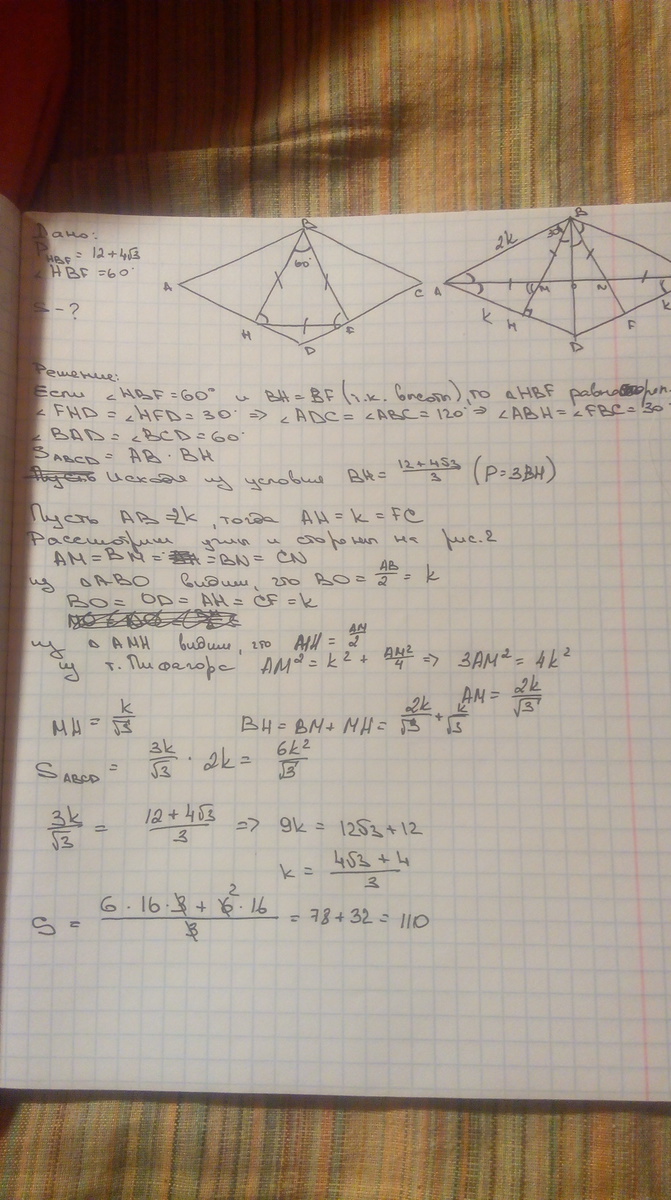 Дано:
P HBF = 12+4√3
∠HBF = 60°
S - ?
B
60°
A
C
H
F
D
B
2k
30°
A
M
O
N
k
H
F
k
D
Решение:
Если ∠HBF = 60° и BH = BF (т.к. высоты), то △HBF
∠FHD = ∠HFD = 30° => ∠ADC = ∠ABC = 120° => ∠ABH = ∠FBC = 30°
∠BAD = ∠BCD = 60°
S ABCD = AB · BH
Исходя из условия BH = (12+4√3)/3 (P = 3BH)
Пусть AB = 2k, тогда AH = k = FC
Рассмотрим углы и стороны на рис. 2
AM = BM = = BN = CN
из △ABO видим, что BO = AB/2 = k
BO = OD = AH = CF = k
из △AMH видим, что MH = AM/2
из т. Пифагора AM² = k² + AM²/4 => 3AM² = 4k²
AM = 2k/√3
MH = k/√3 BH = BM + MH = 2k/√3 + k/√3
S ABCD = 3k/√3 · 2k = 6k²/√3
3k/√3 = (12+4√3)/3 => 9k = 12√3+12
k = (4√3+4)/3
S = (6 · 16 · 3 + 6 2 · 16)/3 = 78 + 32 = 110